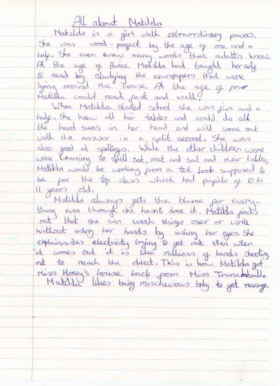 All about Matilda
Matilda is a girl with extraordinary powers.
She was word-perfect by the age of one and a
half. She even knew many words that adults know.
At the age of three Matilda had taught herself
to read by studying the newspapers that were
lying around the house. At the age of four
Matilda could read fast and well.
When Matilda started school she was five and a
half. She knew all her tables and could do all
the hard sums in her head and will come out
with the answer in a split second. She was
also good at spellings. While the other children were
were learning to spell cat, mat and sat and their tables,
Matilda would be working from a text book supposed to
be for the top class which had pupils of 10 to
11 years old.
Matilda always gets the blame for every-
thing even though she hasn't done it. Matilda finds
out that she can knock things over or write
without using her hands by using her eyes. She
explains it as electricity trying to get out. Also when
it comes out it is like millions of hands shooting
out to reach the object. This is how Matilda got
Miss Honey's house back from Miss Trunchbull.
Matilda likes being mischievous only to get revenge